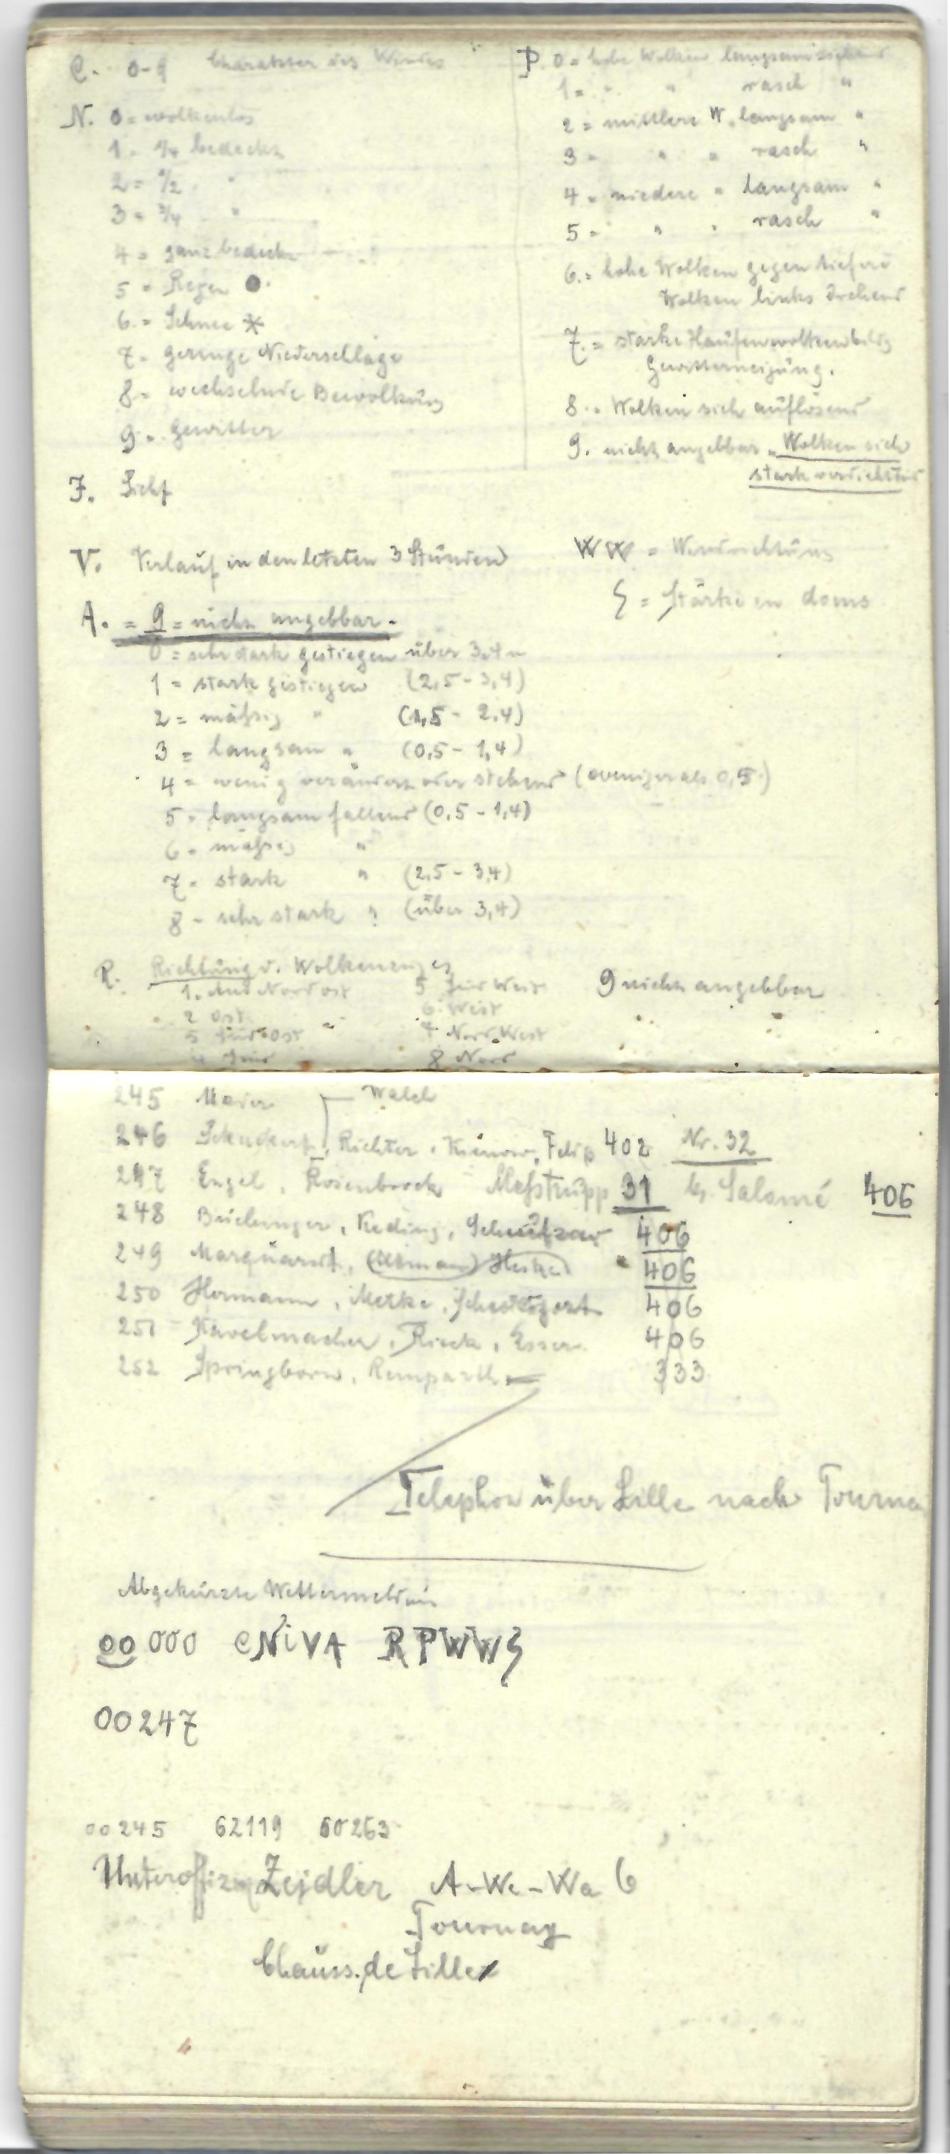 C. 0-9 Charakter des Windes
N. 0 = wolkenlos
1 = 1/4 bedeckt
2 = 1/2 "
3 = 3/4 "
4 = ganz bedeckt
5 = Regen ●
6 = Schnee *
7 = geringe Niederschläge
8 = wechselnde Bewölkung
9 = Gewitter
P. 0 = hohe Wolken langsam ziehend
1 = " " rasch "
2 = mittlere W. langsam "
3 = " " rasch "
4 = niedere " langsam "
5 = " " rasch "
6 = hohe Wolken gegen tiefere
Wolken links drehend
7. = starke Haufenwolkenbildg
Gewitterneigung.
8. = Wolken sich auflösend
9. nicht angebbar. Wolken sich
stark verdichtend
J. Sicht
V. Verlauf in den letzten 3 Stunden
WW = Windrichtung
S = Stärke in doms
A. = 9 = nicht angebbar.
0 = sehr stark gestiegen über 3,4
1 = stark gestiegen (2,5 - 3,4)
2 = mäßig " (1,5 - 2,4)
3 = langsam " (0,5 - 1,4)
4 = wenig verändert oder stehend (weniger als 0,5)
5 = langsam fallend (0,5 - 1,4)
6 = mäßig "
7 = stark " (2,5 - 3,4)
8 - sehr stark " (über 3,4)
R. Richtung d. Wolkenzuges
1. aus Nordost 5 Südwest 9 nicht angebbar
2 Ost 6 West
3 Südost 7 Nord West
4 Süd 8 Nord
245 Maier Walch
246 Richter, 402 Nr. 32
247 Engel, Rosenbrock Meßtrupp 31 Salomé 406
248 Keding, 406
249 Marquardt, 406
250 Hermann, Metke, 406
251 Kavelmacher, Rieck, Esser 406
252 Springborn, 333
Telephon über Lille nach Tourna
Abgekürzte Wettermeldung
00 000 CNiVA RPWWS
00247
00245 62119 60263
Unteroffiz Zeidler A-We-Wa 6
Tournay
Chauss. de Lille